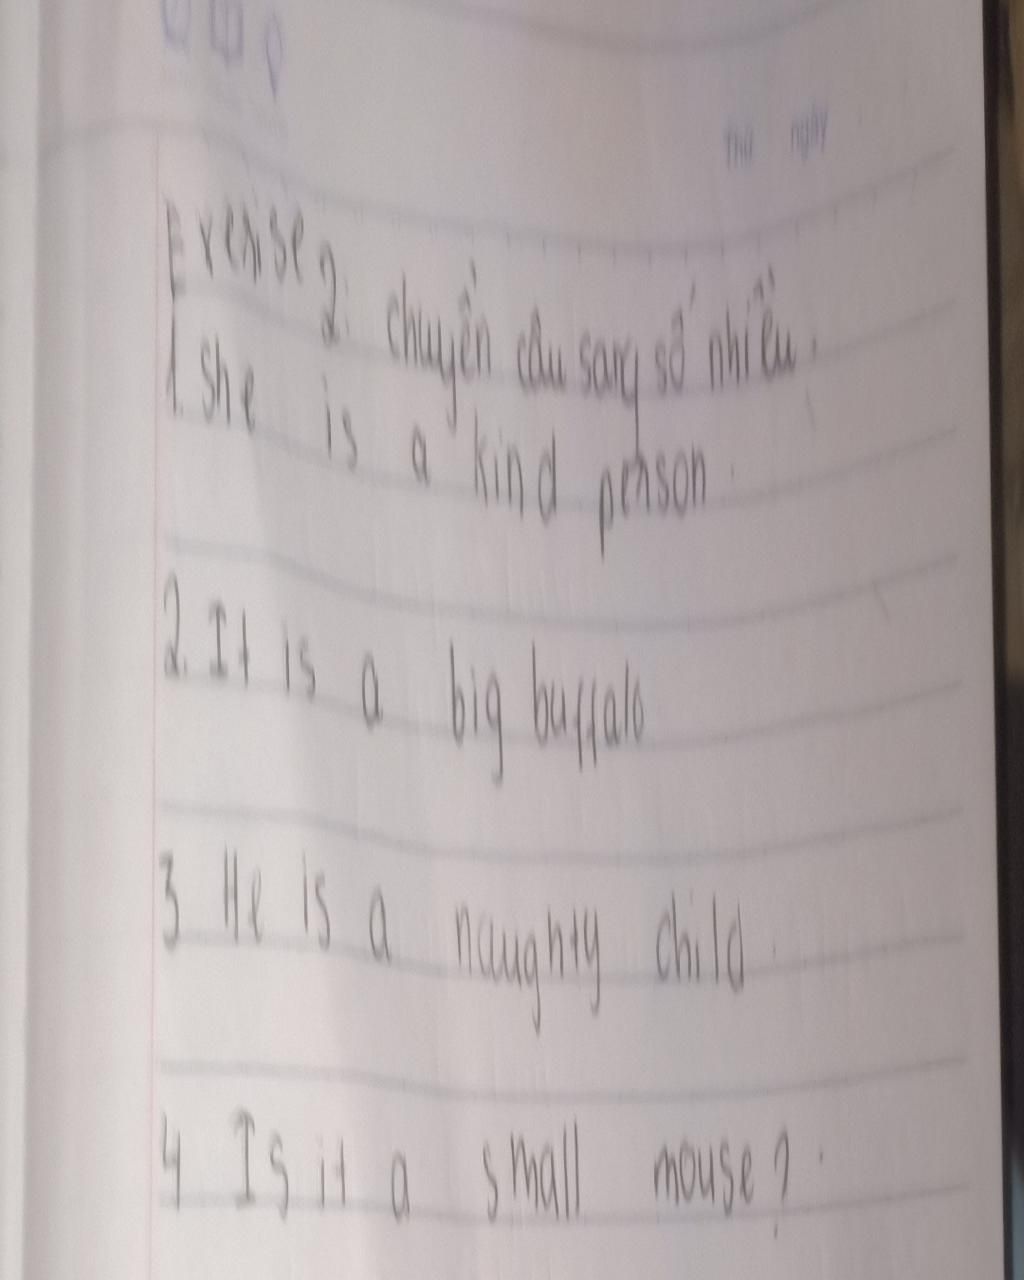 Thứ ngày
Exerise 2: chuyển câu sang số nhiều.
1. She is a kind person.
2. It is a big buffalo
3 He is a naughty child.
4 Is it a small mouse?